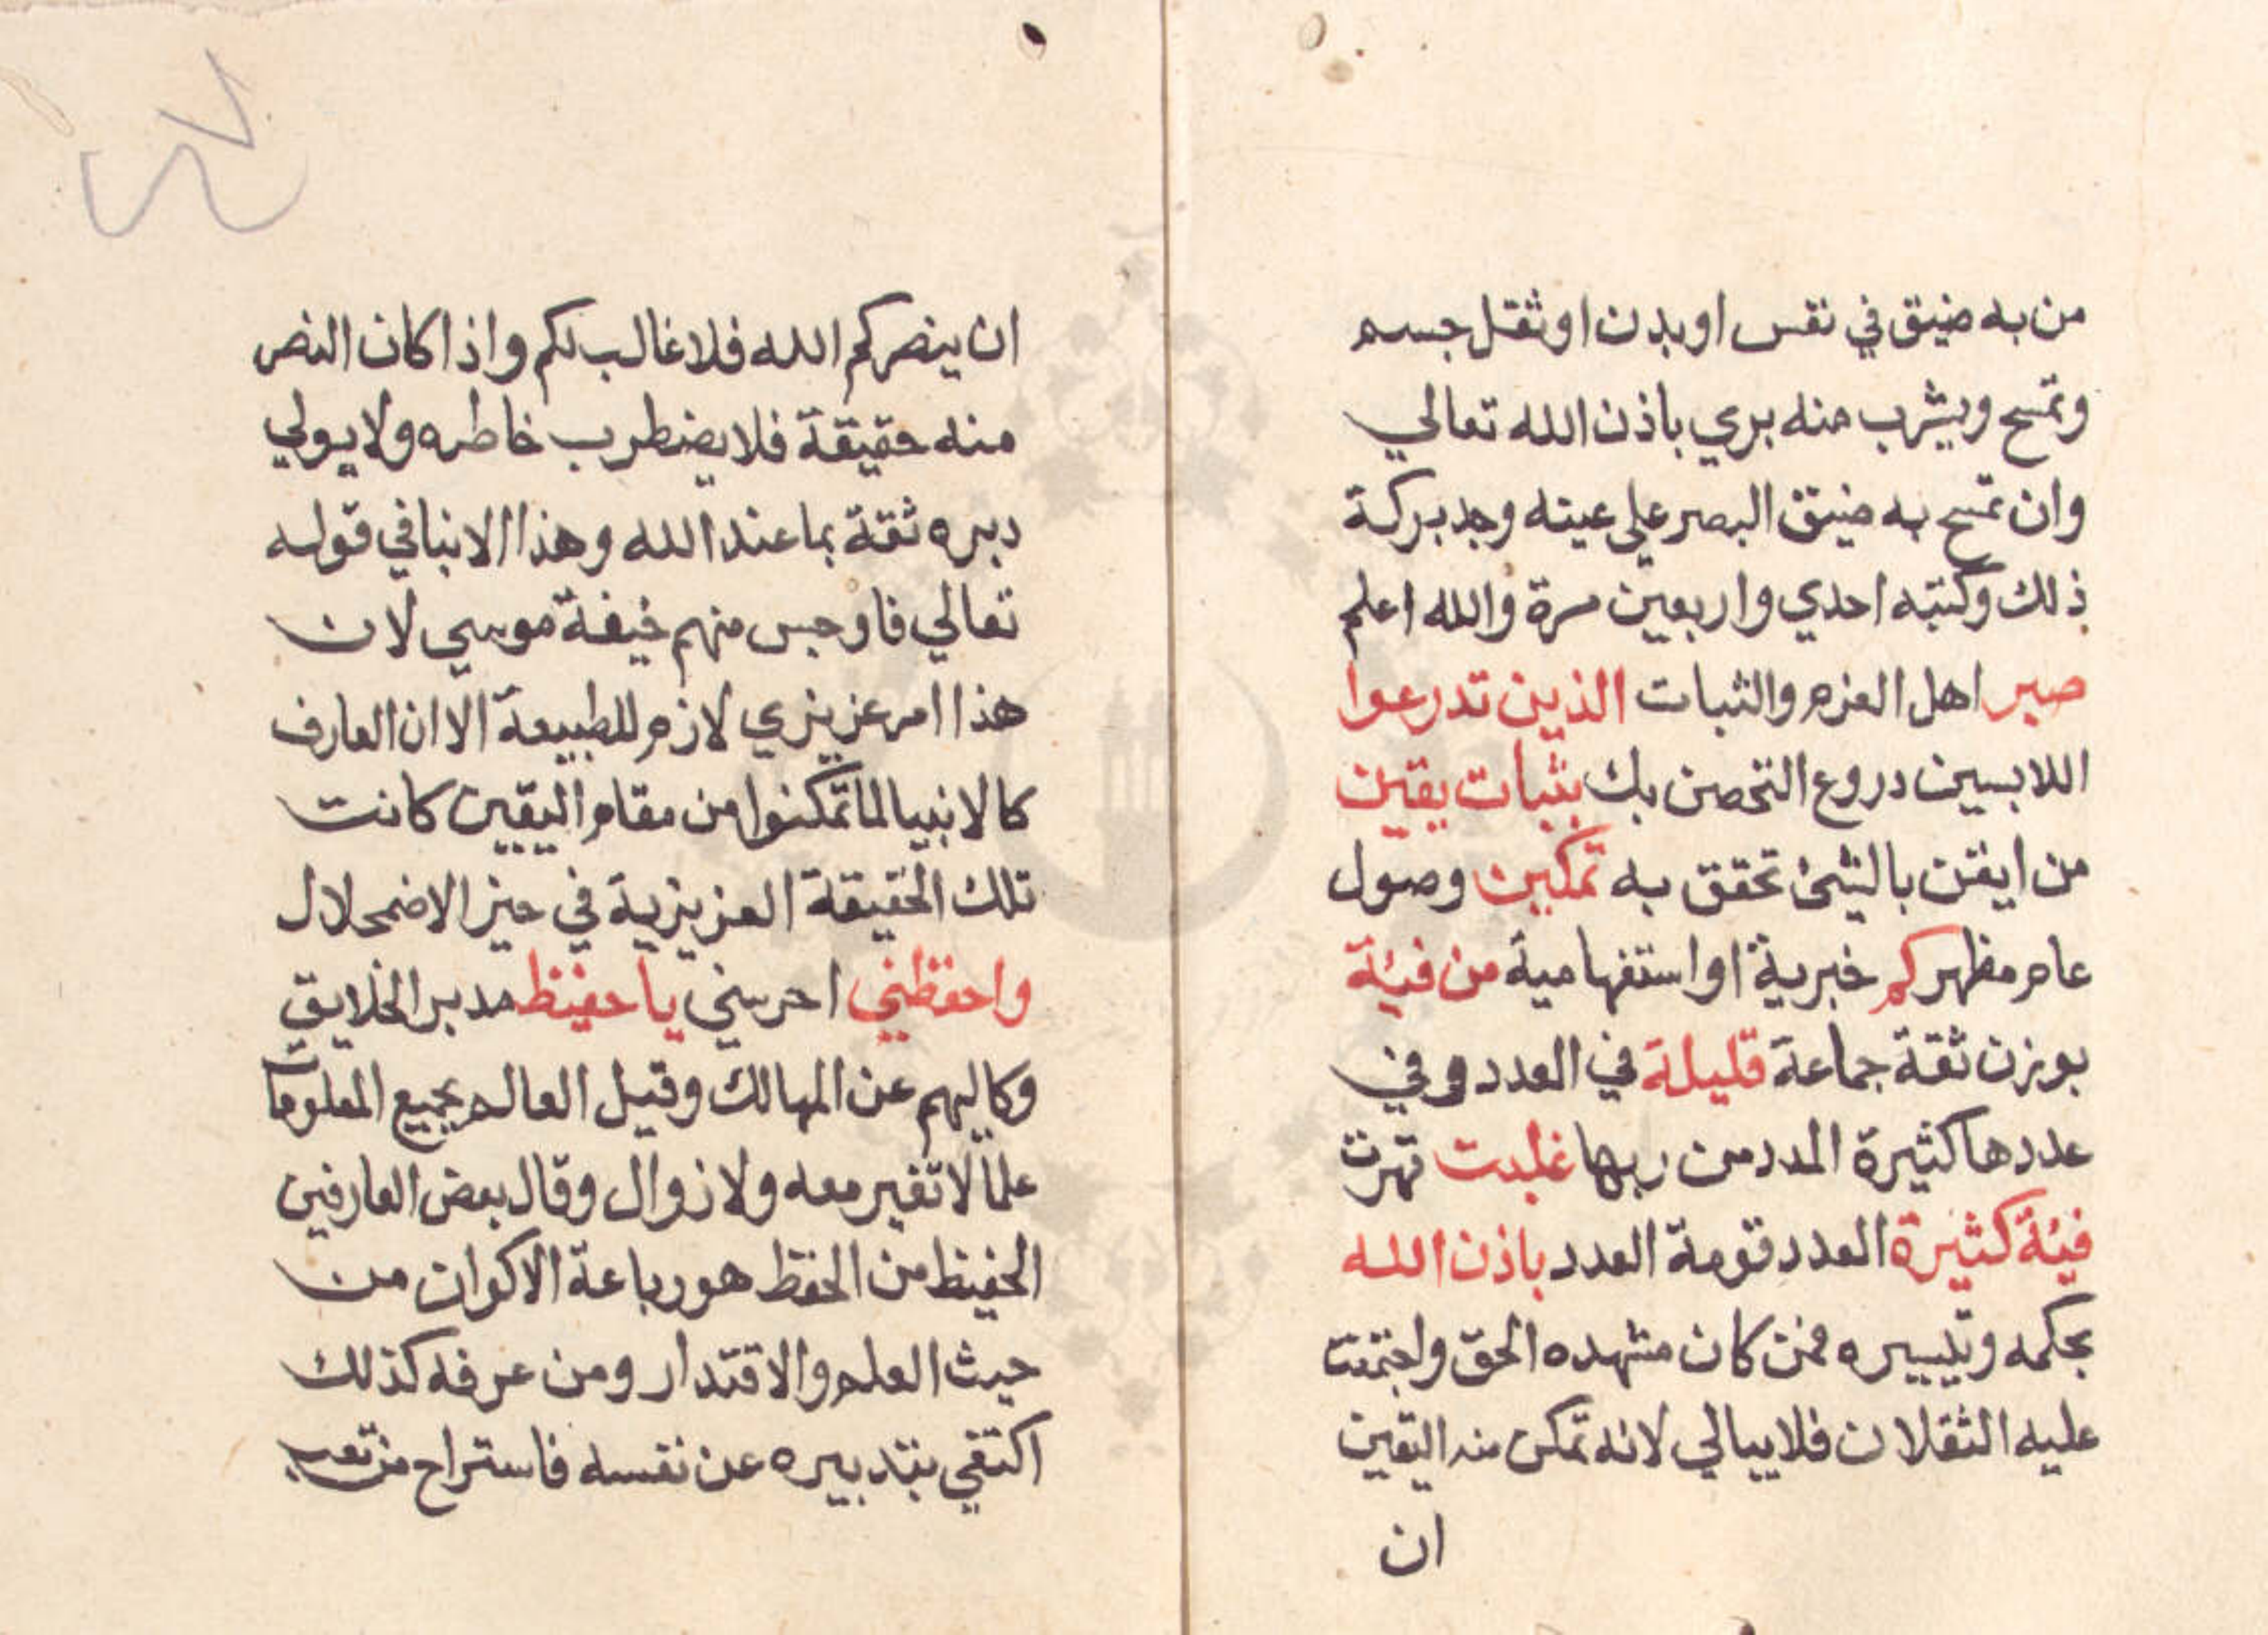 من به ضيق في نفس او بدن او ثقل جسم
وتمسح ويشرب منه بري باذن الله تعالي
وان تمسح به ضيق البصر علي عينه وجد بركة
ذلك وكتبه احدي واربعين مرة والله اعلم
صبر اهل العزم والثبات الذين تدرعوا
اللابسين دروع التحصن بك بثبات يقين
من ايقن بالشئ تحقق به تمكين وصول
عام مظهر كم خبرية او استفهامية من فيئة
بوزن ثقة جماعة قليلة في العدد وفي
عددها كثيرة المدد من ربها غلبت قهرت
فيئة كثيرة العدد قومة العدد باذن الله
بحكمه وتيسيره فمن كان مشهده الحق واجتمعت
عليه الثقلان فلا يبالي لانه تمكن منه اليقين
ان
ان ينصركم الله فلا غالب لكم واذا كان النصر
منه حقيقة فلا يضطرب خاطره ولا يولي
دبره ثقة بما عند الله وهذا الا ينافي قوله
تعالي فاوجس منهم خيفة موسي لان
هذا امر عزيزي لازم للطبيعة الا ان العارف
كالانبيا لما تمكنوا من مقام اليقين كانت
تلك الحقيقة العزيزية في حيز الاضمحلال
واحفظني احرسني يا حفيظ مدبر الخلايق
وكاليهم عن المهالك وقيل العالم بجميع المعلومات
علما لا تغير معه ولا زوال وقال بعض العارفين
الحفيظ من الحفظ هو رباعة الاكوان من
حيث العلم والاقتدار ومن عرفه كذلك
اكتفي بتدبيره عن نفسه فاستراح من تعب